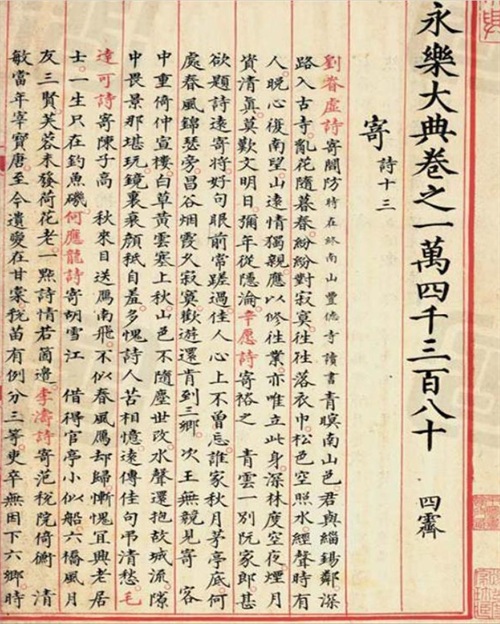 永樂大典卷之一萬四千三百八十 四霽
寄 詩十三
劉眘虛詩寄閻防時在終南山豐德寺讀書 青暝南山邑君與緇錫鄰深
路入古寺亂花隨暮春紛紛對寂寞往往落衣巾松色空照水經聲時有
人晚心復南望山遠情獨親應以修往業亦唯立此身深林度空夜煙月
資清真莫歎文明日彌年從隱淪辛愿詩寄裕之 青雲一別阮家郎甚
欲題詩遠寄將好句眼前常蹉過佳人心上不曾忘誰家秋月茅亭底何
處春風錦瑟旁昌谷烟霞久寂寞歡遊還肯到三鄉 次王無競見寄 客
中重倚仲宣樓白草黃雲塞上秋山色不隨塵世改水聲還抱故城流隙
中畏景那堪玩鏡裏衰顏秖自羞多愧詩人苦相憶遠傳佳句弔清愁毛
達可詩寄陳子高 秋來目送鴈南飛不似春風鴈却歸慚愧宜興老居
士一生只在釣魚磯何應龍詩寄胡雪江 借得官亭小似船六橋風月
友三賢芙蓉未發荷花老一點詩情若箇邊李濤詩寄范稅院倚衡 清
敏當年宰寶唐至今遺愛在甘棠稅苗有例分三等吏卒無因下六鄉時